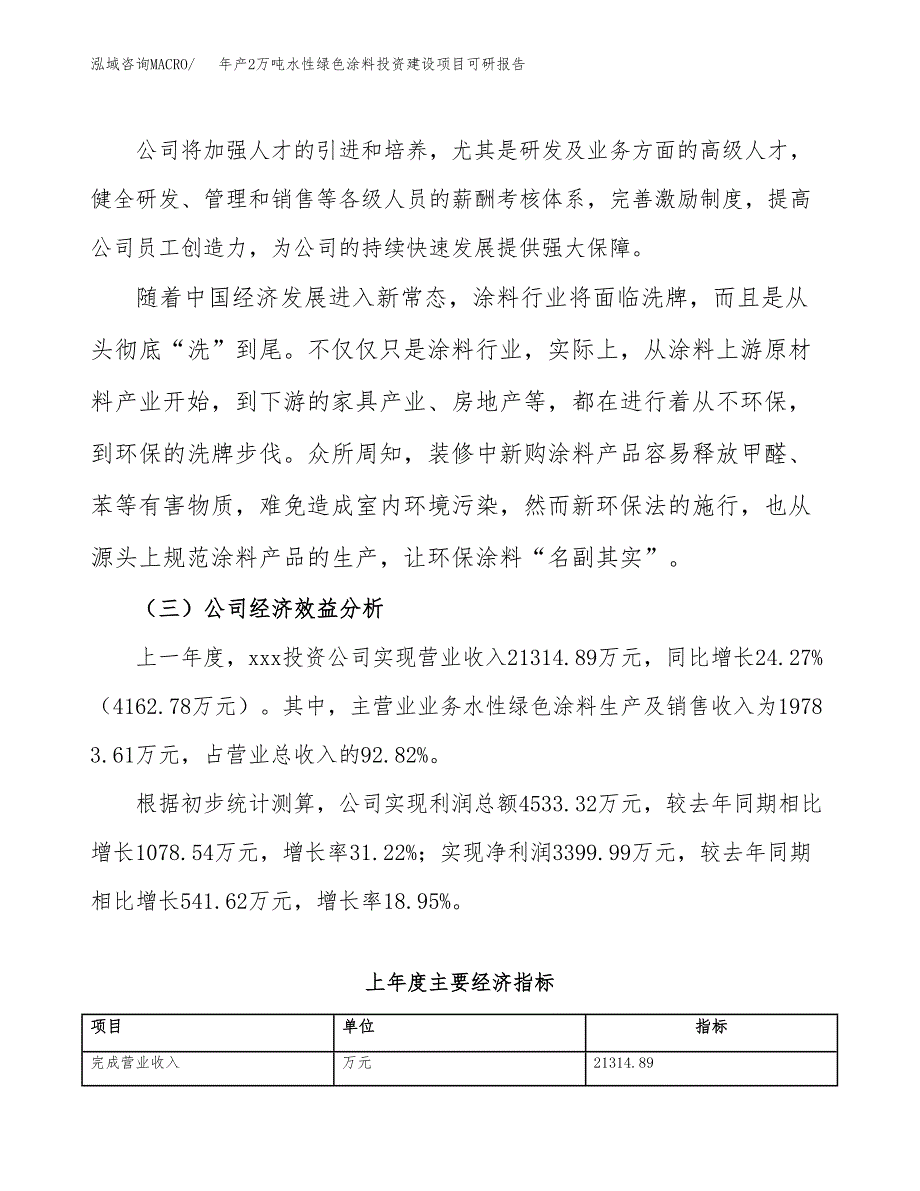 泓域咨询MACRO/ 年产2万吨水性绿色涂料投资建设项目可研报告
公司将加强人才的引进和培养，尤其是研发及业务方面的高级人才，
健全研发、管理和销售等各级人员的薪酬考核体系，完善激励制度，提高
公司员工创造力，为公司的持续快速发展提供强大保障。
随着中国经济发展进入新常态，涂料行业将面临洗牌，而且是从
头彻底“洗”到尾。不仅仅只是涂料行业，实际上，从涂料上游原材
料产业开始，到下游的家具产业、房地产等，都在进行着从不环保，
到环保的洗牌步伐。众所周知，装修中新购涂料产品容易释放甲醛、
苯等有害物质，难免造成室内环境污染，然而新环保法的施行，也从
源头上规范涂料产品的生产，让环保涂料“名副其实”。
（三）公司经济效益分析
上一年度，xxx投资公司实现营业收入21314.89万元，同比增长24.27%
（4162.78万元）。其中，主营业业务水性绿色涂料生产及销售收入为1978
3.61万元，占营业总收入的92.82%。
根据初步统计测算，公司实现利润总额4533.32万元，较去年同期相比
增长1078.54万元，增长率31.22%；实现净利润3399.99万元，较去年同期
相比增长541.62万元，增长率18.95%。
上年度主要经济指标
项目 单位 指标
完成营业收入 万元 21314.89